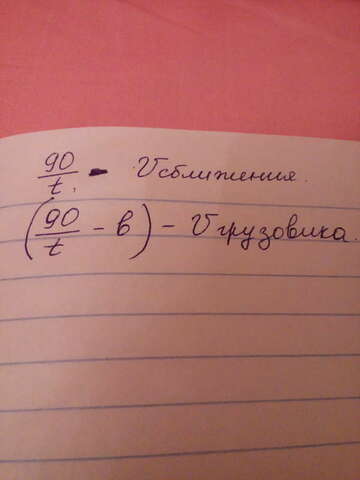 90/t - Vсближения.
(90/t - в) - Vгрузовика.